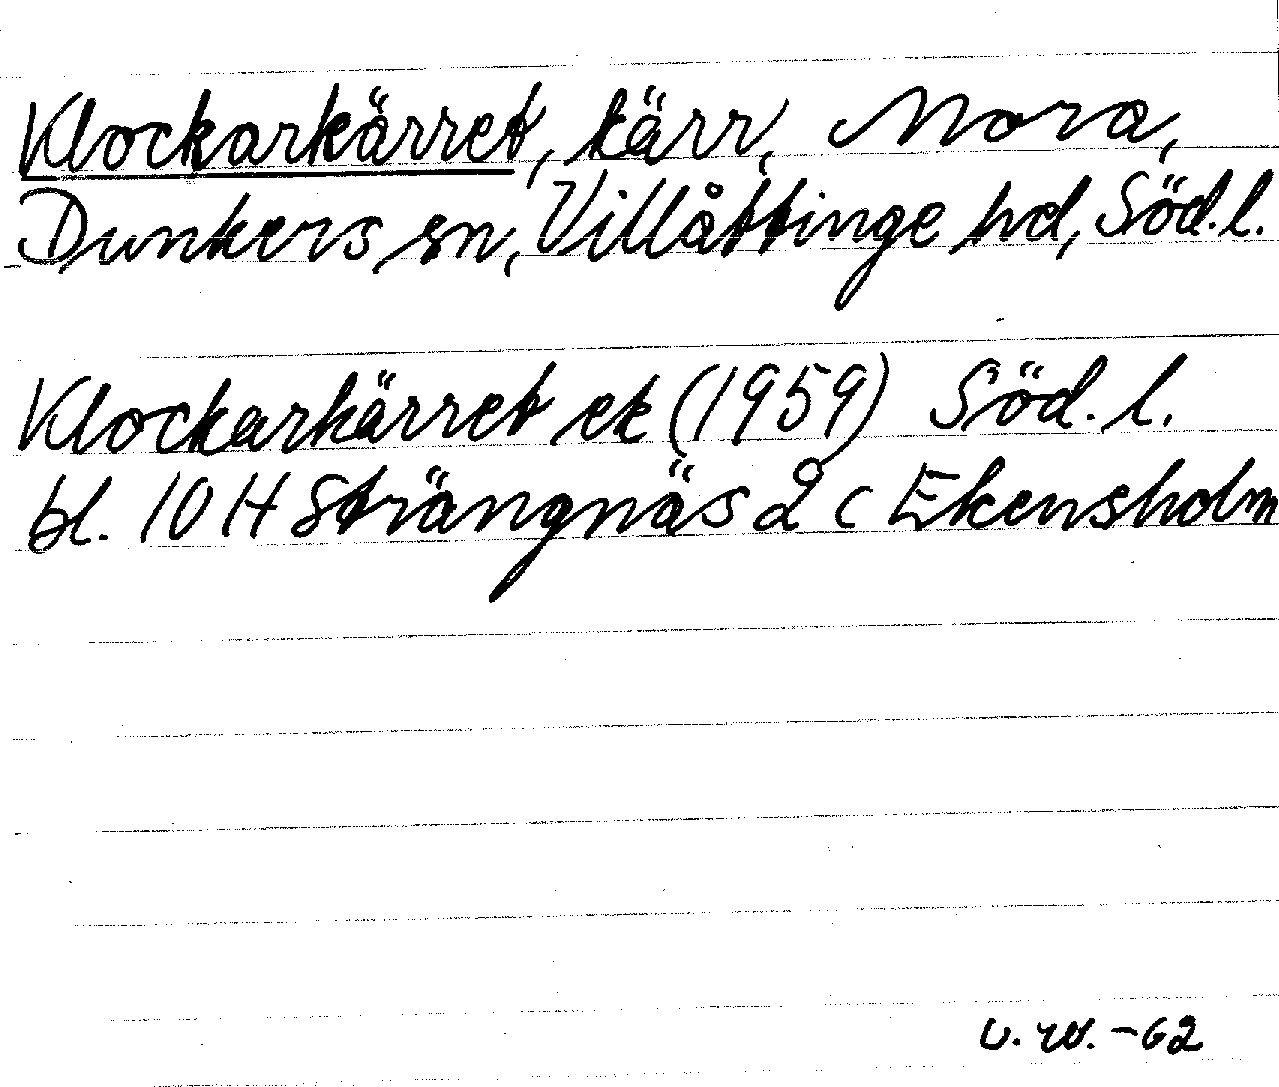 Klockarkärret, kärr, Nora,
Dunkers sn, Villåttinge hd, Söd.l.
Klockarkärret ek (1959) Söd. l.
bl. 10 H Strängnäs 2 c Ekensholm
v. w. -62